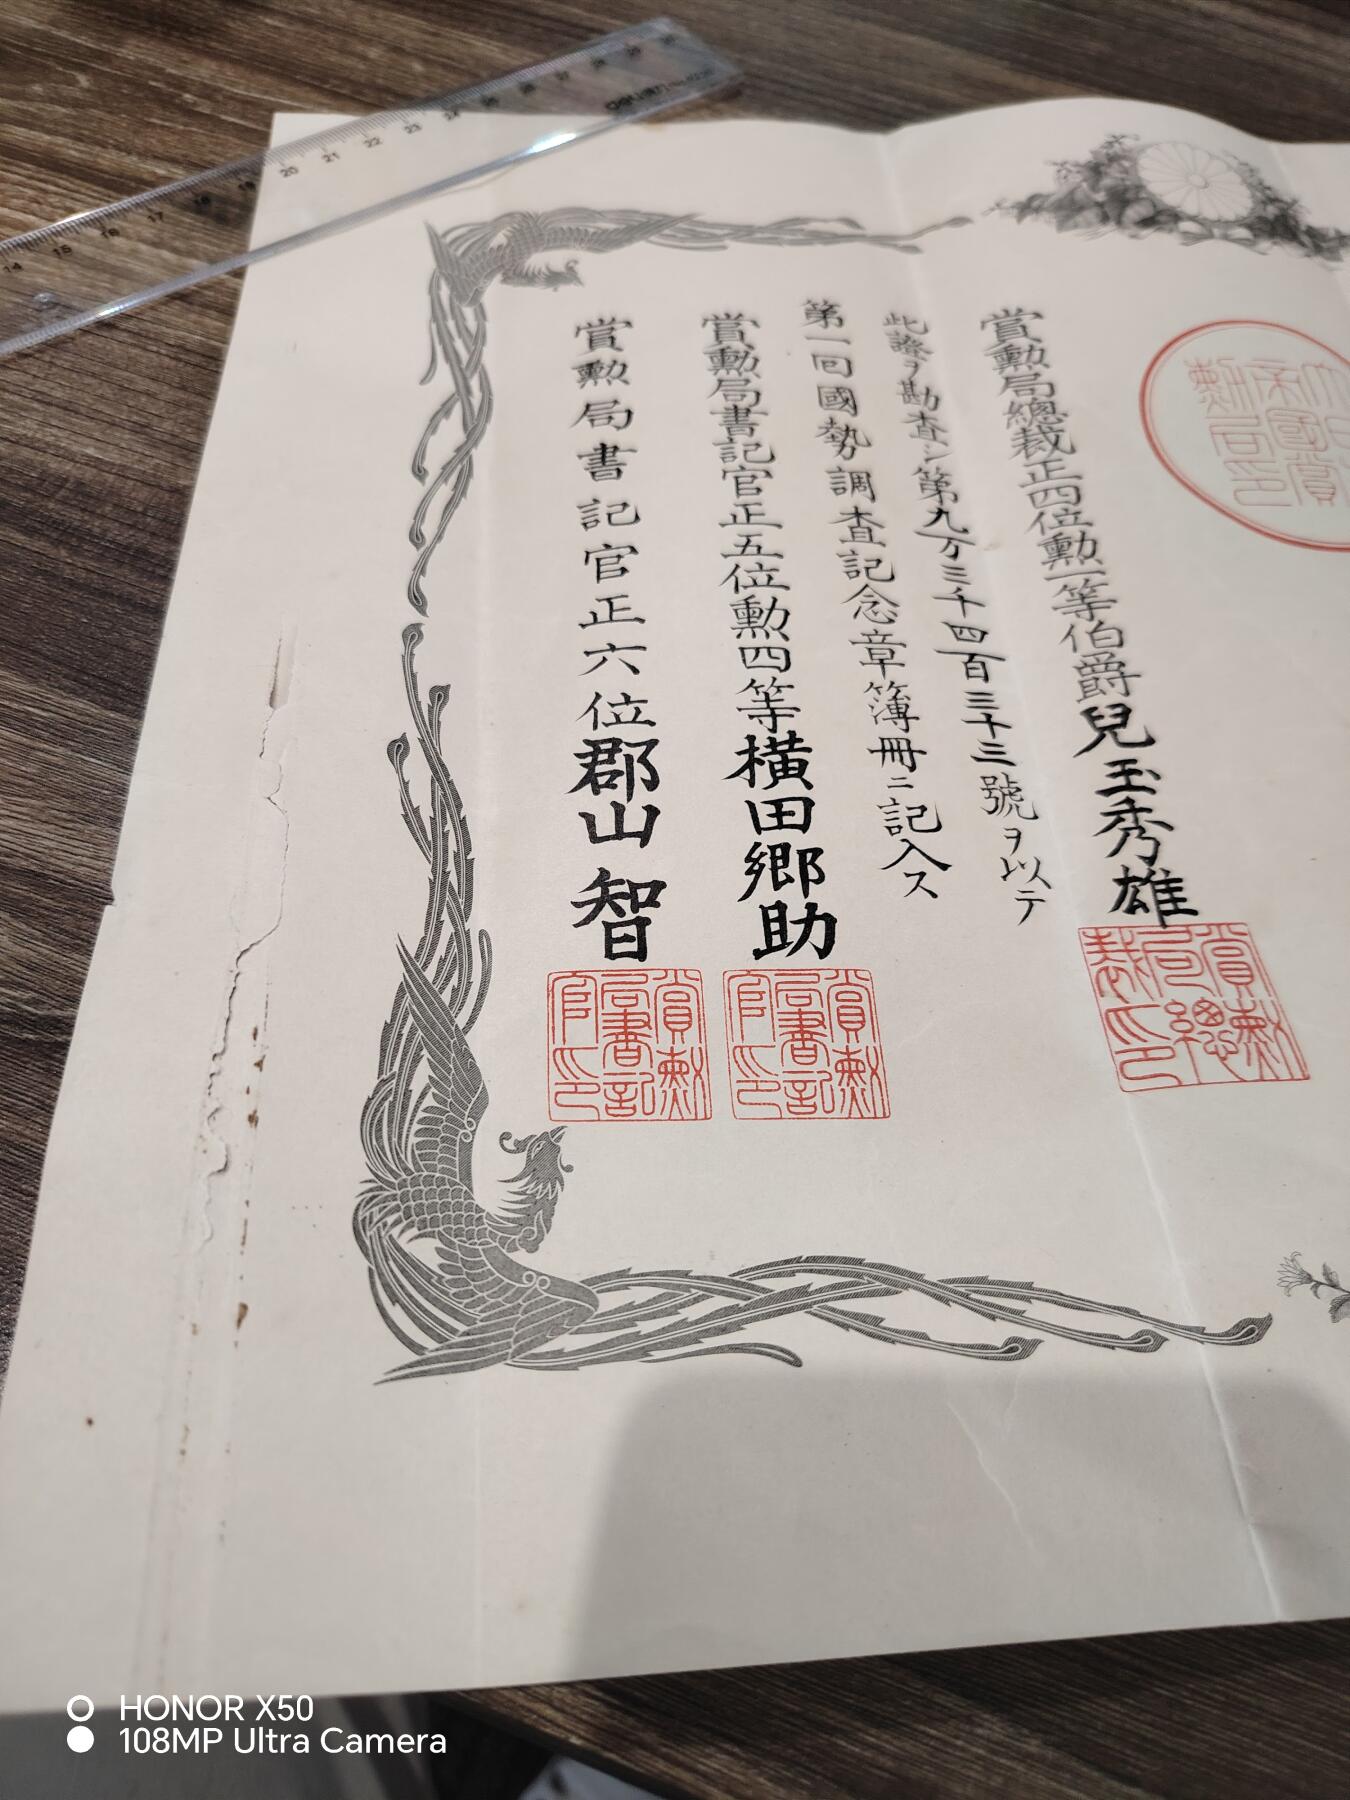 賞勲局總裁正四位勲一等伯爵兒玉秀雄
此證ヲ勘査シ第九万三千四百三十三號ヲ以テ
第一回國勢調査記念章簿冊ニ記入ス
賞勲局書記官正五位勲四等横田郷助
賞勲局書記官正六位郡山智
賞勲局總裁印
賞勲局書記官印
賞勲局書記官印
14 15 16 17 18 19 20 21 22 23 24 25 26 27 28 29 30
deli
HONOR X50
108MP Ultra Camera